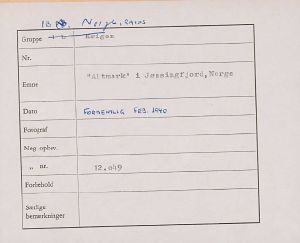 Gruppe Krigen
Nr.
Emne "Altmark" i Jøssingfjord, Norge
Dato FORMENTLIG FEB. 1940
Fotograf
Neg. opbev.
„ nr. 12.049
Forbehold
Særlige
bemærkninger